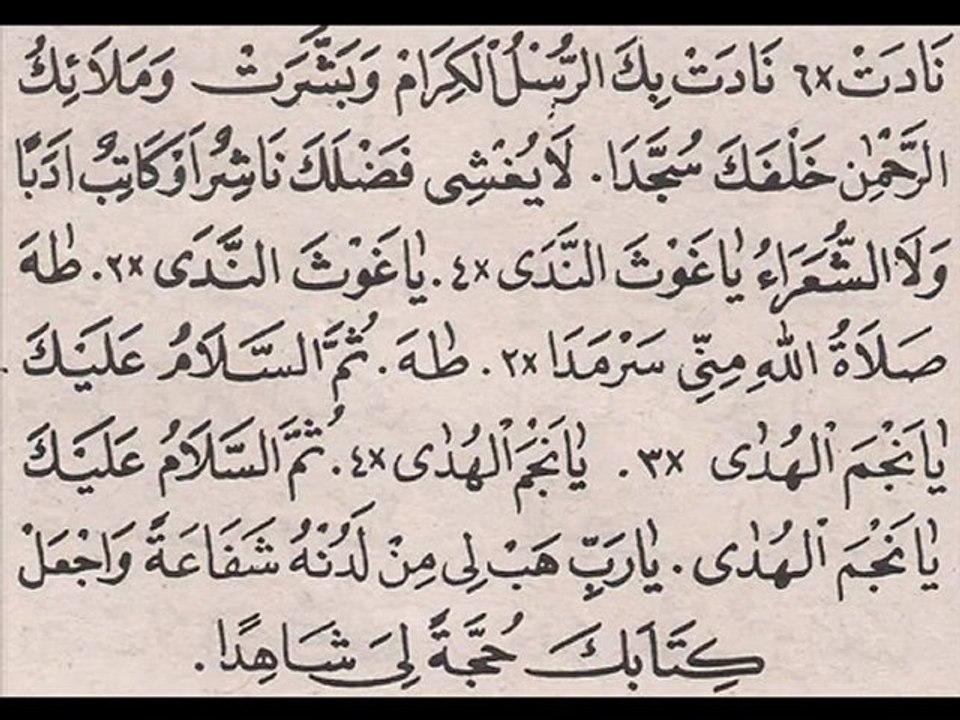 نَادَتْ ×٦ نَادَتْ بِكَ الرُّسْلُ الْكِرَامْ وَبَشَّرَتْ وَمَلَائِكُ
الرَّحْمٰنِ خَلْفَكَ سُجَّدَا. لَا يُغْشِى فَضْلَكَ نَاشِرٌ اَوْ كَاتِبٌ اَدَبًا
وَلَا الشُّعَرَاءُ يَا غَوْثَ النَّدَى ×٤. يَا غَوْثَ النَّدَى ×٢. طٰهَ
صَلَاةُ اللهِ مِنِّى سَرْمَدَا ×٢. طٰهَ. ثُمَّ السَّلَامُ عَلَيْكَ
يَا نَجْمَ الْهُدٰى ×٣. يَا نَجْمَ الْهُدٰى ×٤. ثُمَّ السَّلَامُ عَلَيْكَ
يَا نَجْمَ الْهُدٰى. يَا رَبِّ هَبْ لِى مِنْ لَدُنْهُ شَفَاعَةً وَاجْعَلْ
كِتَابَكَ حُجَّةً لِىَ شَاهِدًا.